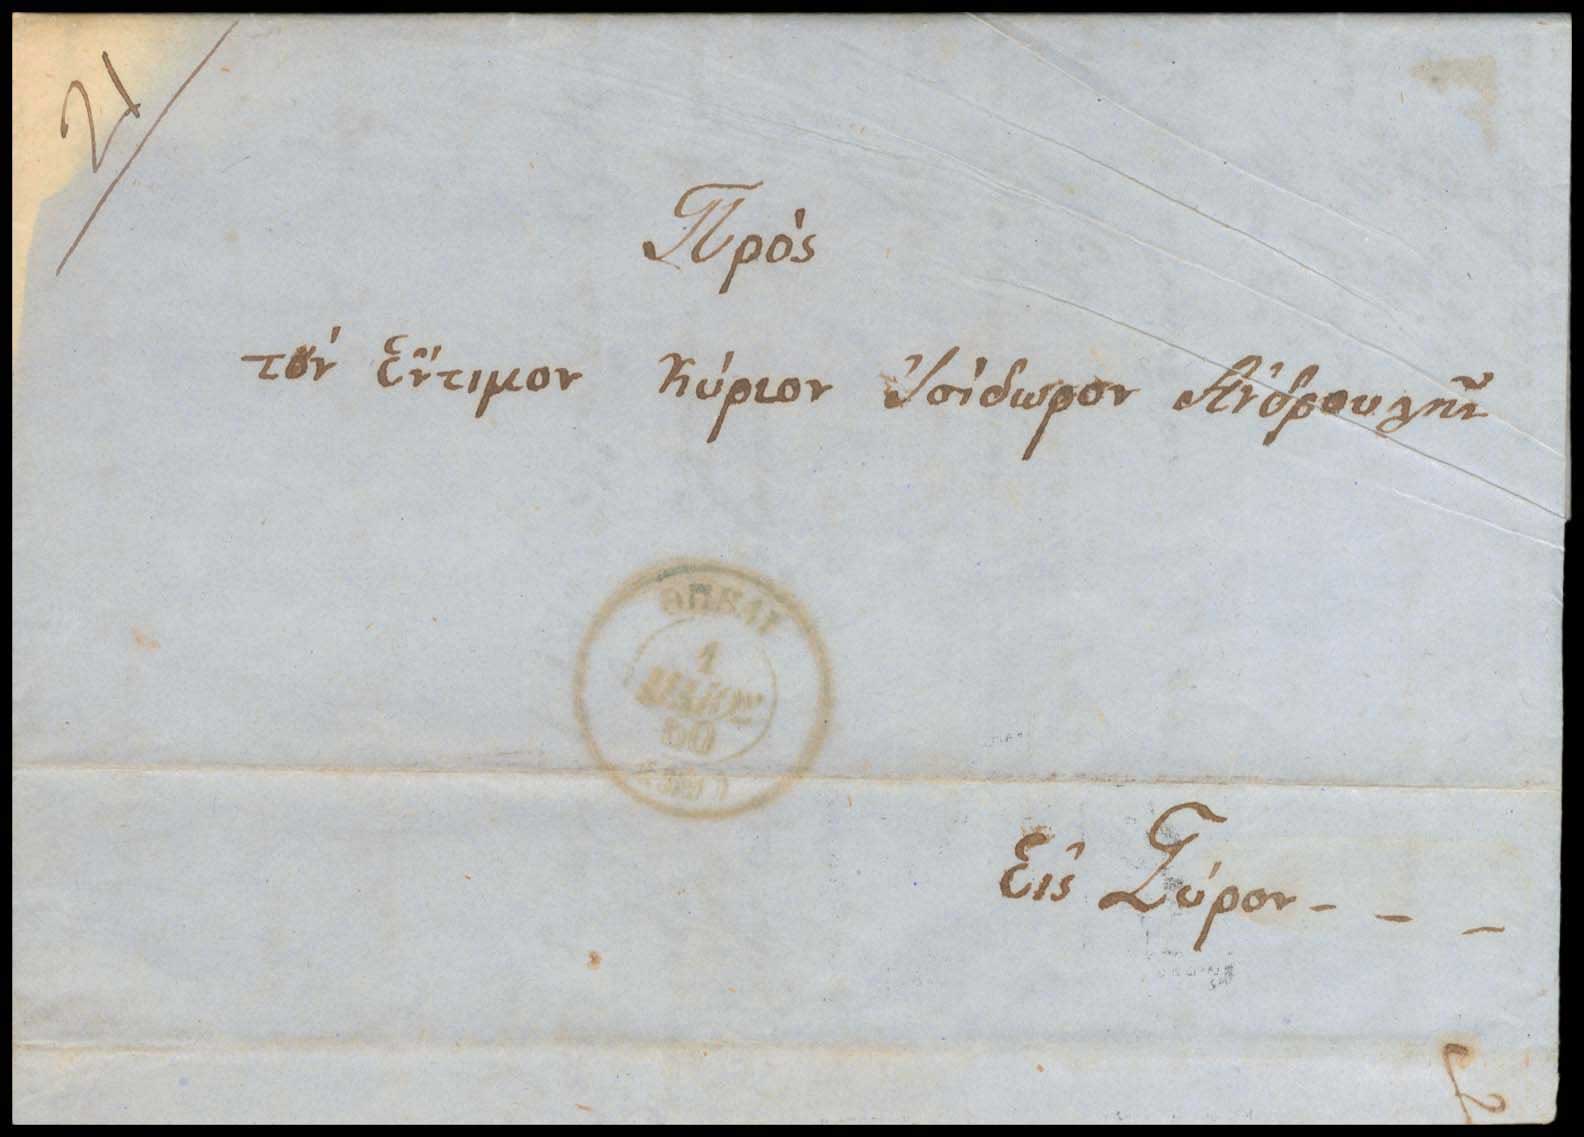 21
Πρὸς
τὸν Ἔντιμον Κύριον Ἰσίδωρον Ἀνδρουλῆν
ΘΗΒΑΙ
1
ΜΑΪΟΣ
60
Εἰς Σύρον - - -